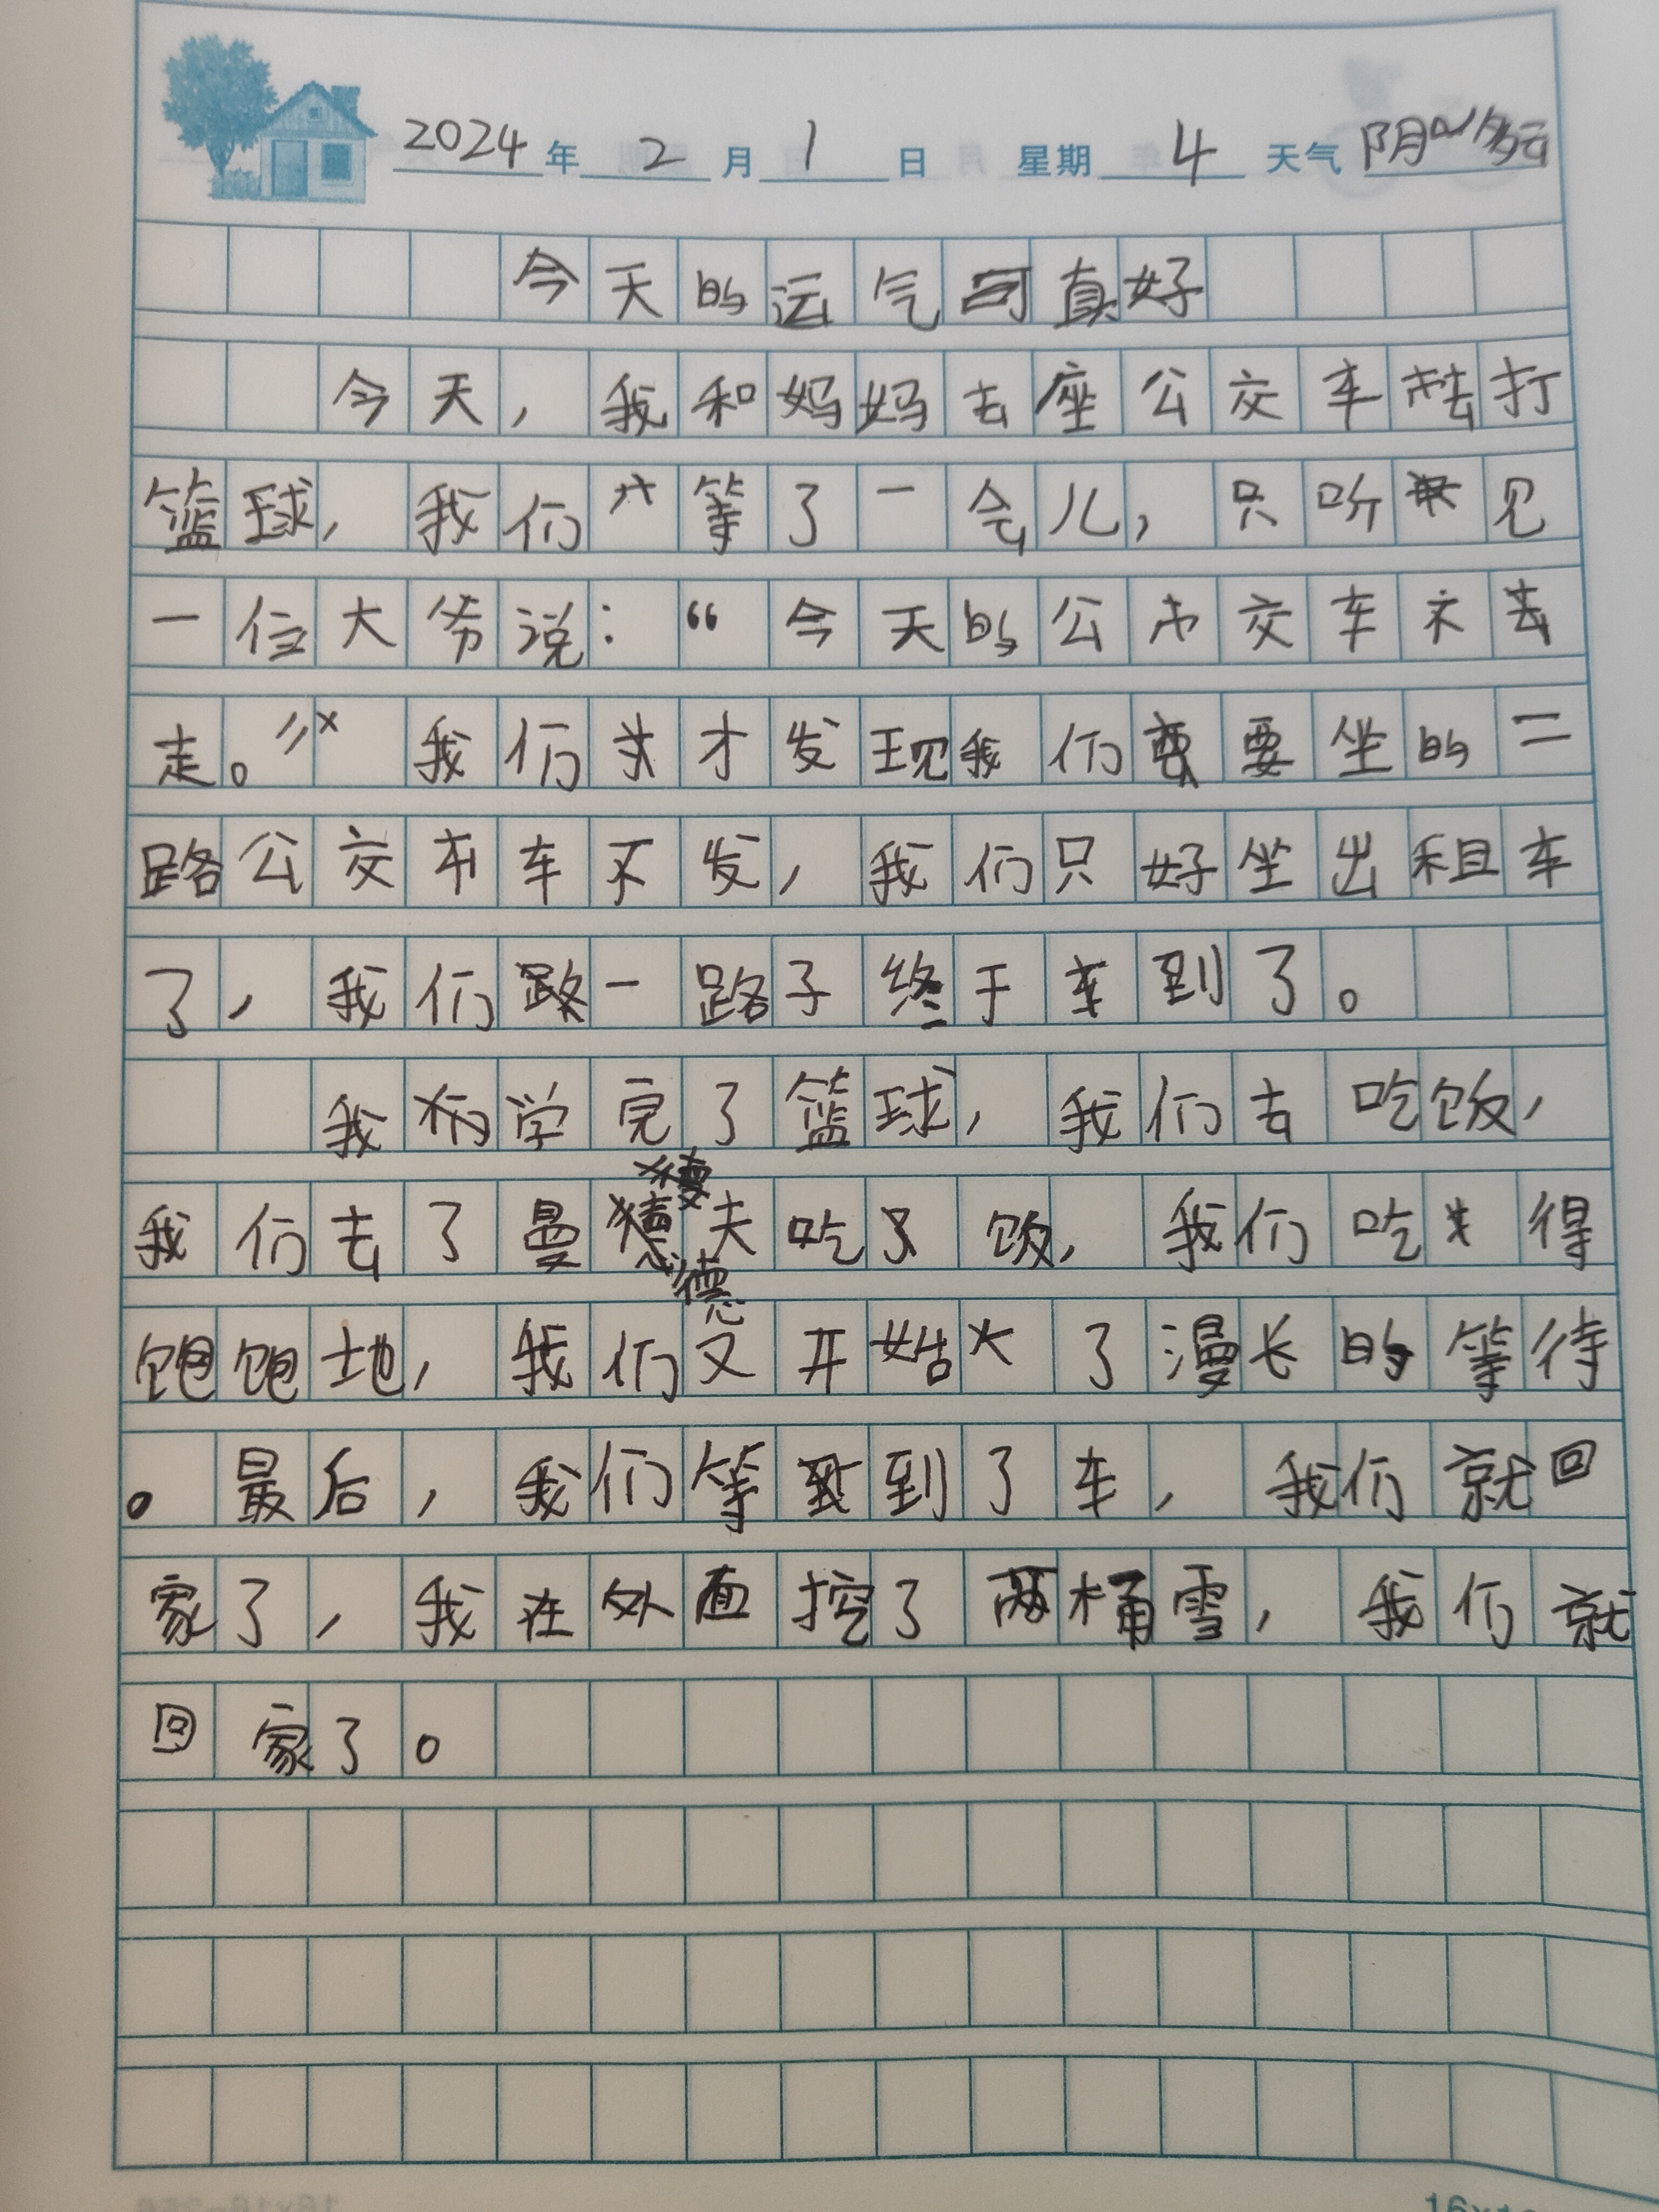 2024年2月1日 星期4 天气阴~多云
今天的运气可真好
今天，我和妈妈去座公交车去打
篮球，我们等了一会儿，只听见
一位大爷说：“今天的公交车不
走。”我们才发现我们要坐的二
路公交车不发，我们只好坐出租车
了，我们一路子终于到了。
我学完了篮球，我们去吃饭，
我们去了曼德夫吃饭，我们吃得
饱饱地，我们又开始了漫长的等待
。最后，我们等到了车，我们就回
家了，我在外面挖了两桶雪，我们就
回家了。